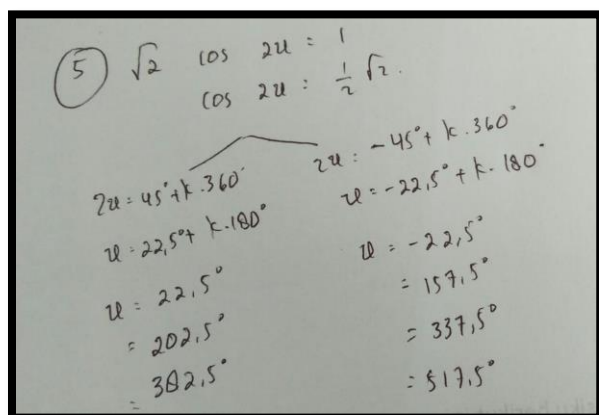 5 √2 cos 2x = 1
cos 2x = 1/2 √2.
2x = 45° + k.360°
x = 22,5° + k.180°
x = 22,5°
= 202,5°
= 382,5°
2x = -45° + k.360°
x = -22,5° + k.180°
x = -22,5°
= 157,5°
= 337,5°
= 517,5°